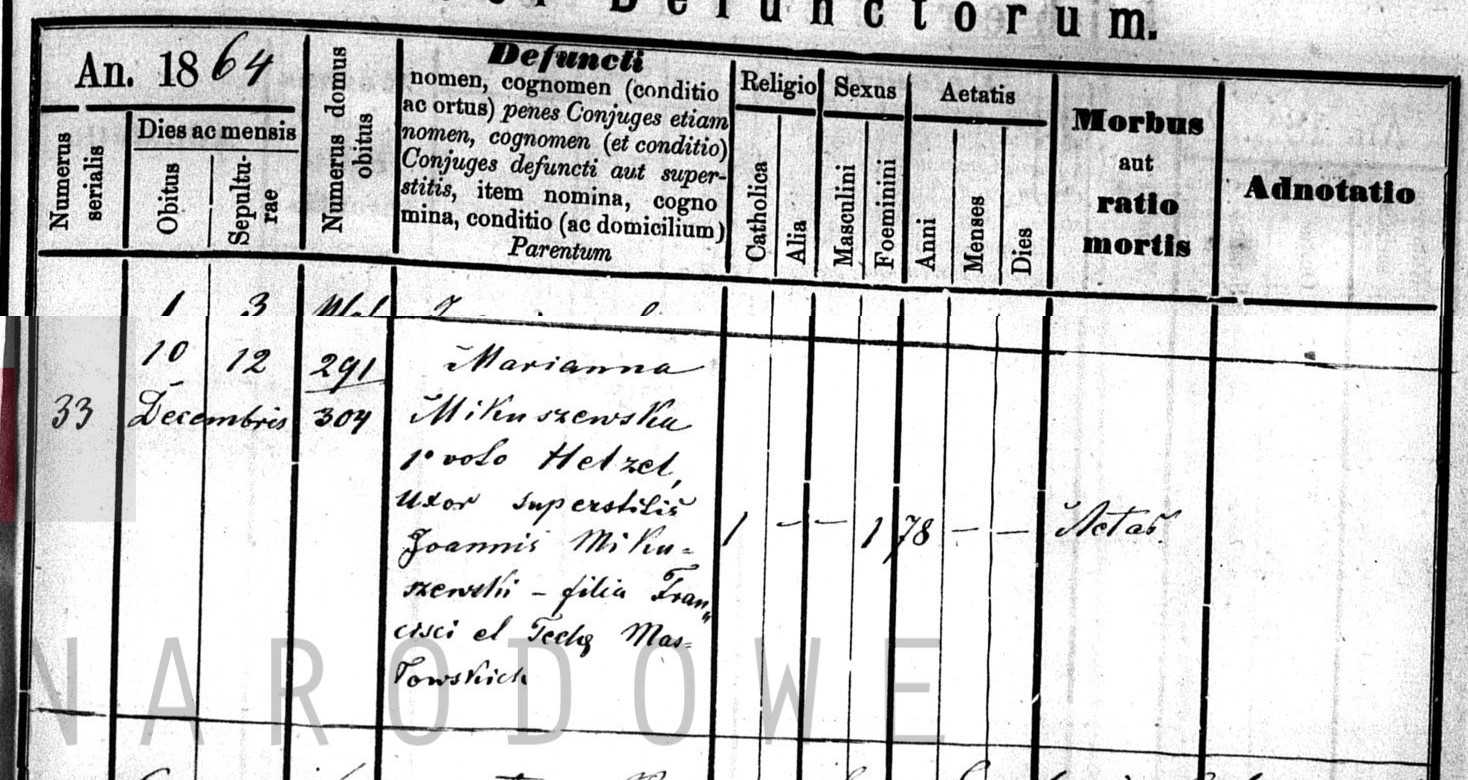 Defunctorum.
An. 1864
Numerus serialis
Dies ac mensis
Obitus
Sepulturae
Numerus domus obitus
Defuncti
nomen, cognomen (conditio
ac ortus) penes Conjuges etiam
nomen, cognomen (et conditio)
Conjuges defuncti aut super-
stitis, item nomina, cogno
mina, conditio (ac domicilium)
Parentum
Religio
Catholica
Alia
Sexus
Masculini
Foeminini
Aetatis
Anni
Menses
Dies
Morbus
aut
ratio
mortis
Adnotatio
1 3
33
10 12
Decembris
291
304
Marianna
Mikuszewska
1º voto Hetzel,
Uxor superstitis
Joannis Miku-
szewski - filia Fran„
cisci et Teclę Mas-
łowskich
1 - - 1 78 - -
Aetas.
NARODOWE